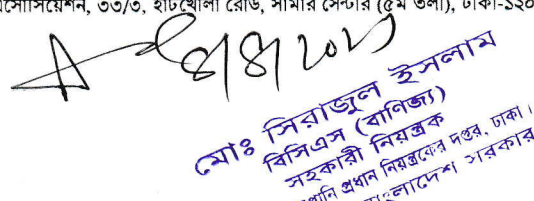 সোসিয়েশন, ৩৩/৩, হাটখোলা রোড, সামার সেন্টার (৫ম তলা), ঢাকা-১২০
মোঃ সিরাজুল ইসলাম
বিসিএস (বাণিজ্য)
সহকারী নিয়ন্ত্রক
প্রধান নিয়ন্ত্রকের দপ্তর, ঢাকা।
সরকার